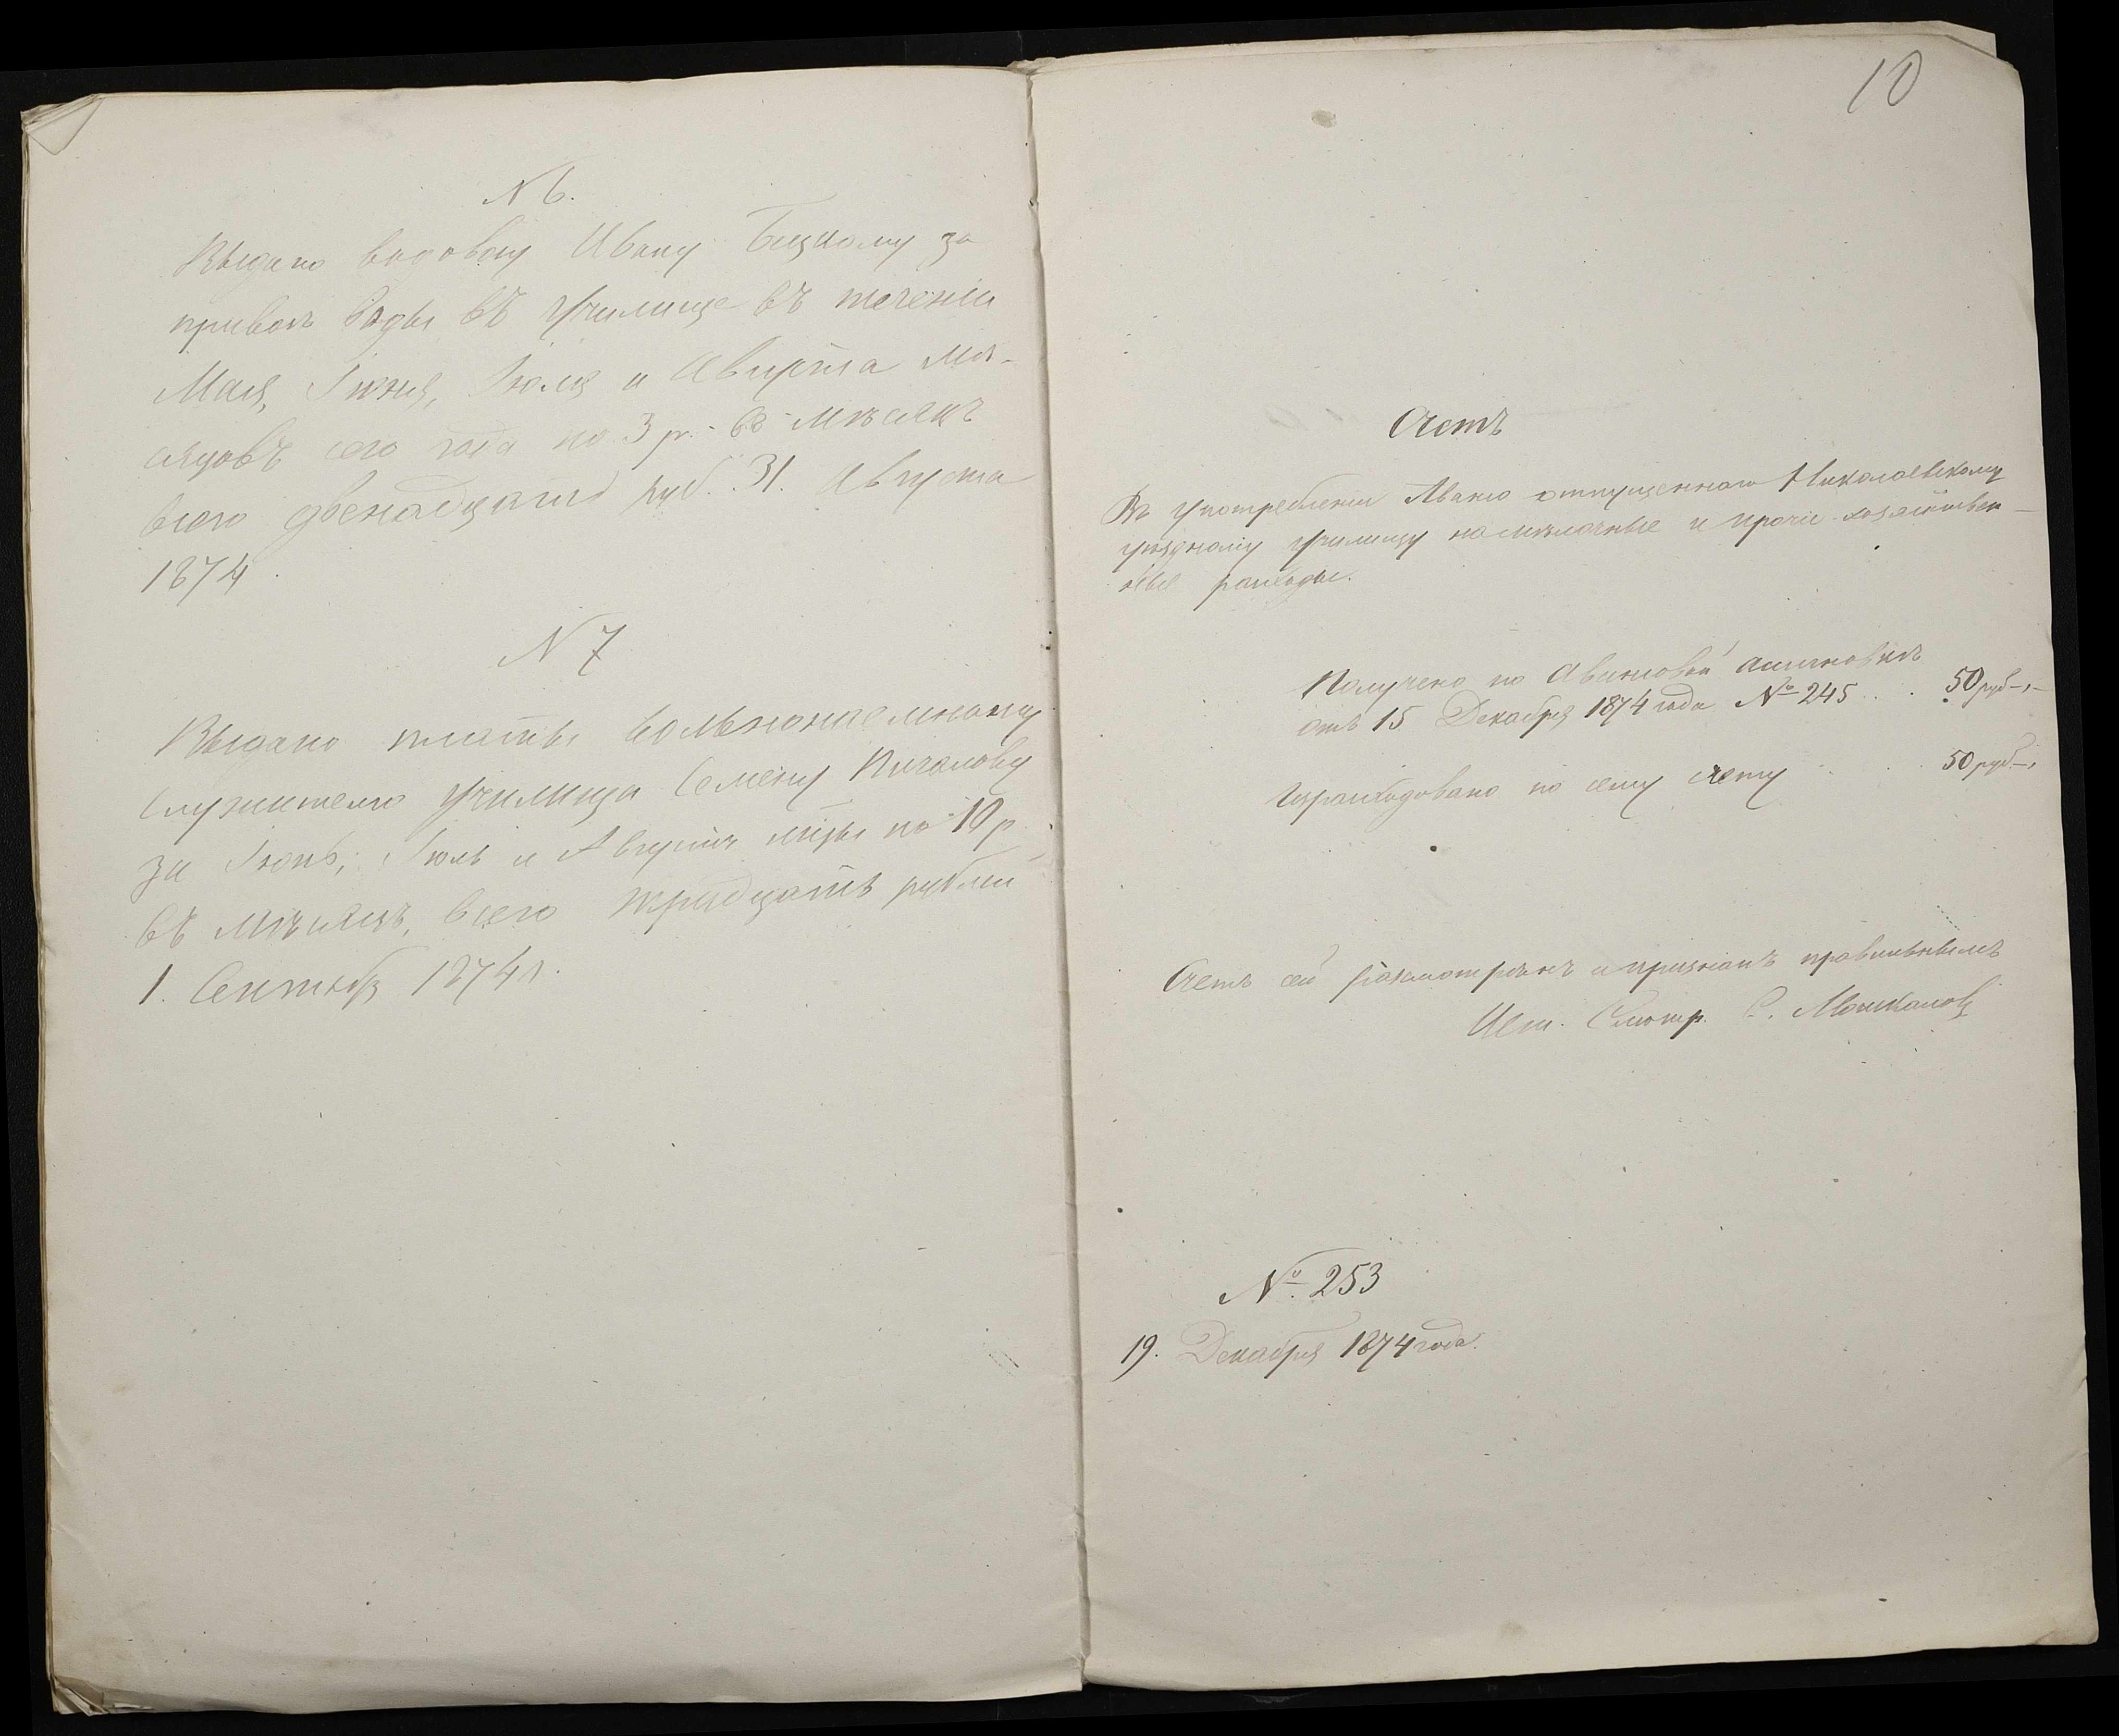 N 6.
Выдано водовозу Ивану Бицкому за
привозъ воды въ Училище въ теченіи
Мая, Іюня, Іюля и Августа мѣ-
сяцовъ сего года по 3 р. въ мѣсяцъ
всего двенадцать руб. 31. Августа
1874.
N 7
Выдано платы вольнонаемному
служителю училища Семену Пичалову
за Іюнь, Іюль и Августъ мѣцы по 10 р.
въ мѣсяцъ, всего тридцать рублей
1. Сентября 1874 г.
10
Счетъ
Въ употребленіи Аванса отпущеннаго Николаевскому
уѣздному училищу на мѣлочные и прочіе хозяйствен-
ные расходы.
Получено по Авансовой ассигновкѣ
отъ 15 Декабря 1874 года № 245 . . 50 руб. –
Израсходовано по сему счету . . . 50 руб. –
Счетъ сей разсмотрѣнъ и признанъ правильнымъ
Шт. Смотр. С. Мошкаловъ
№ 253
19. Декабря 1874 года.